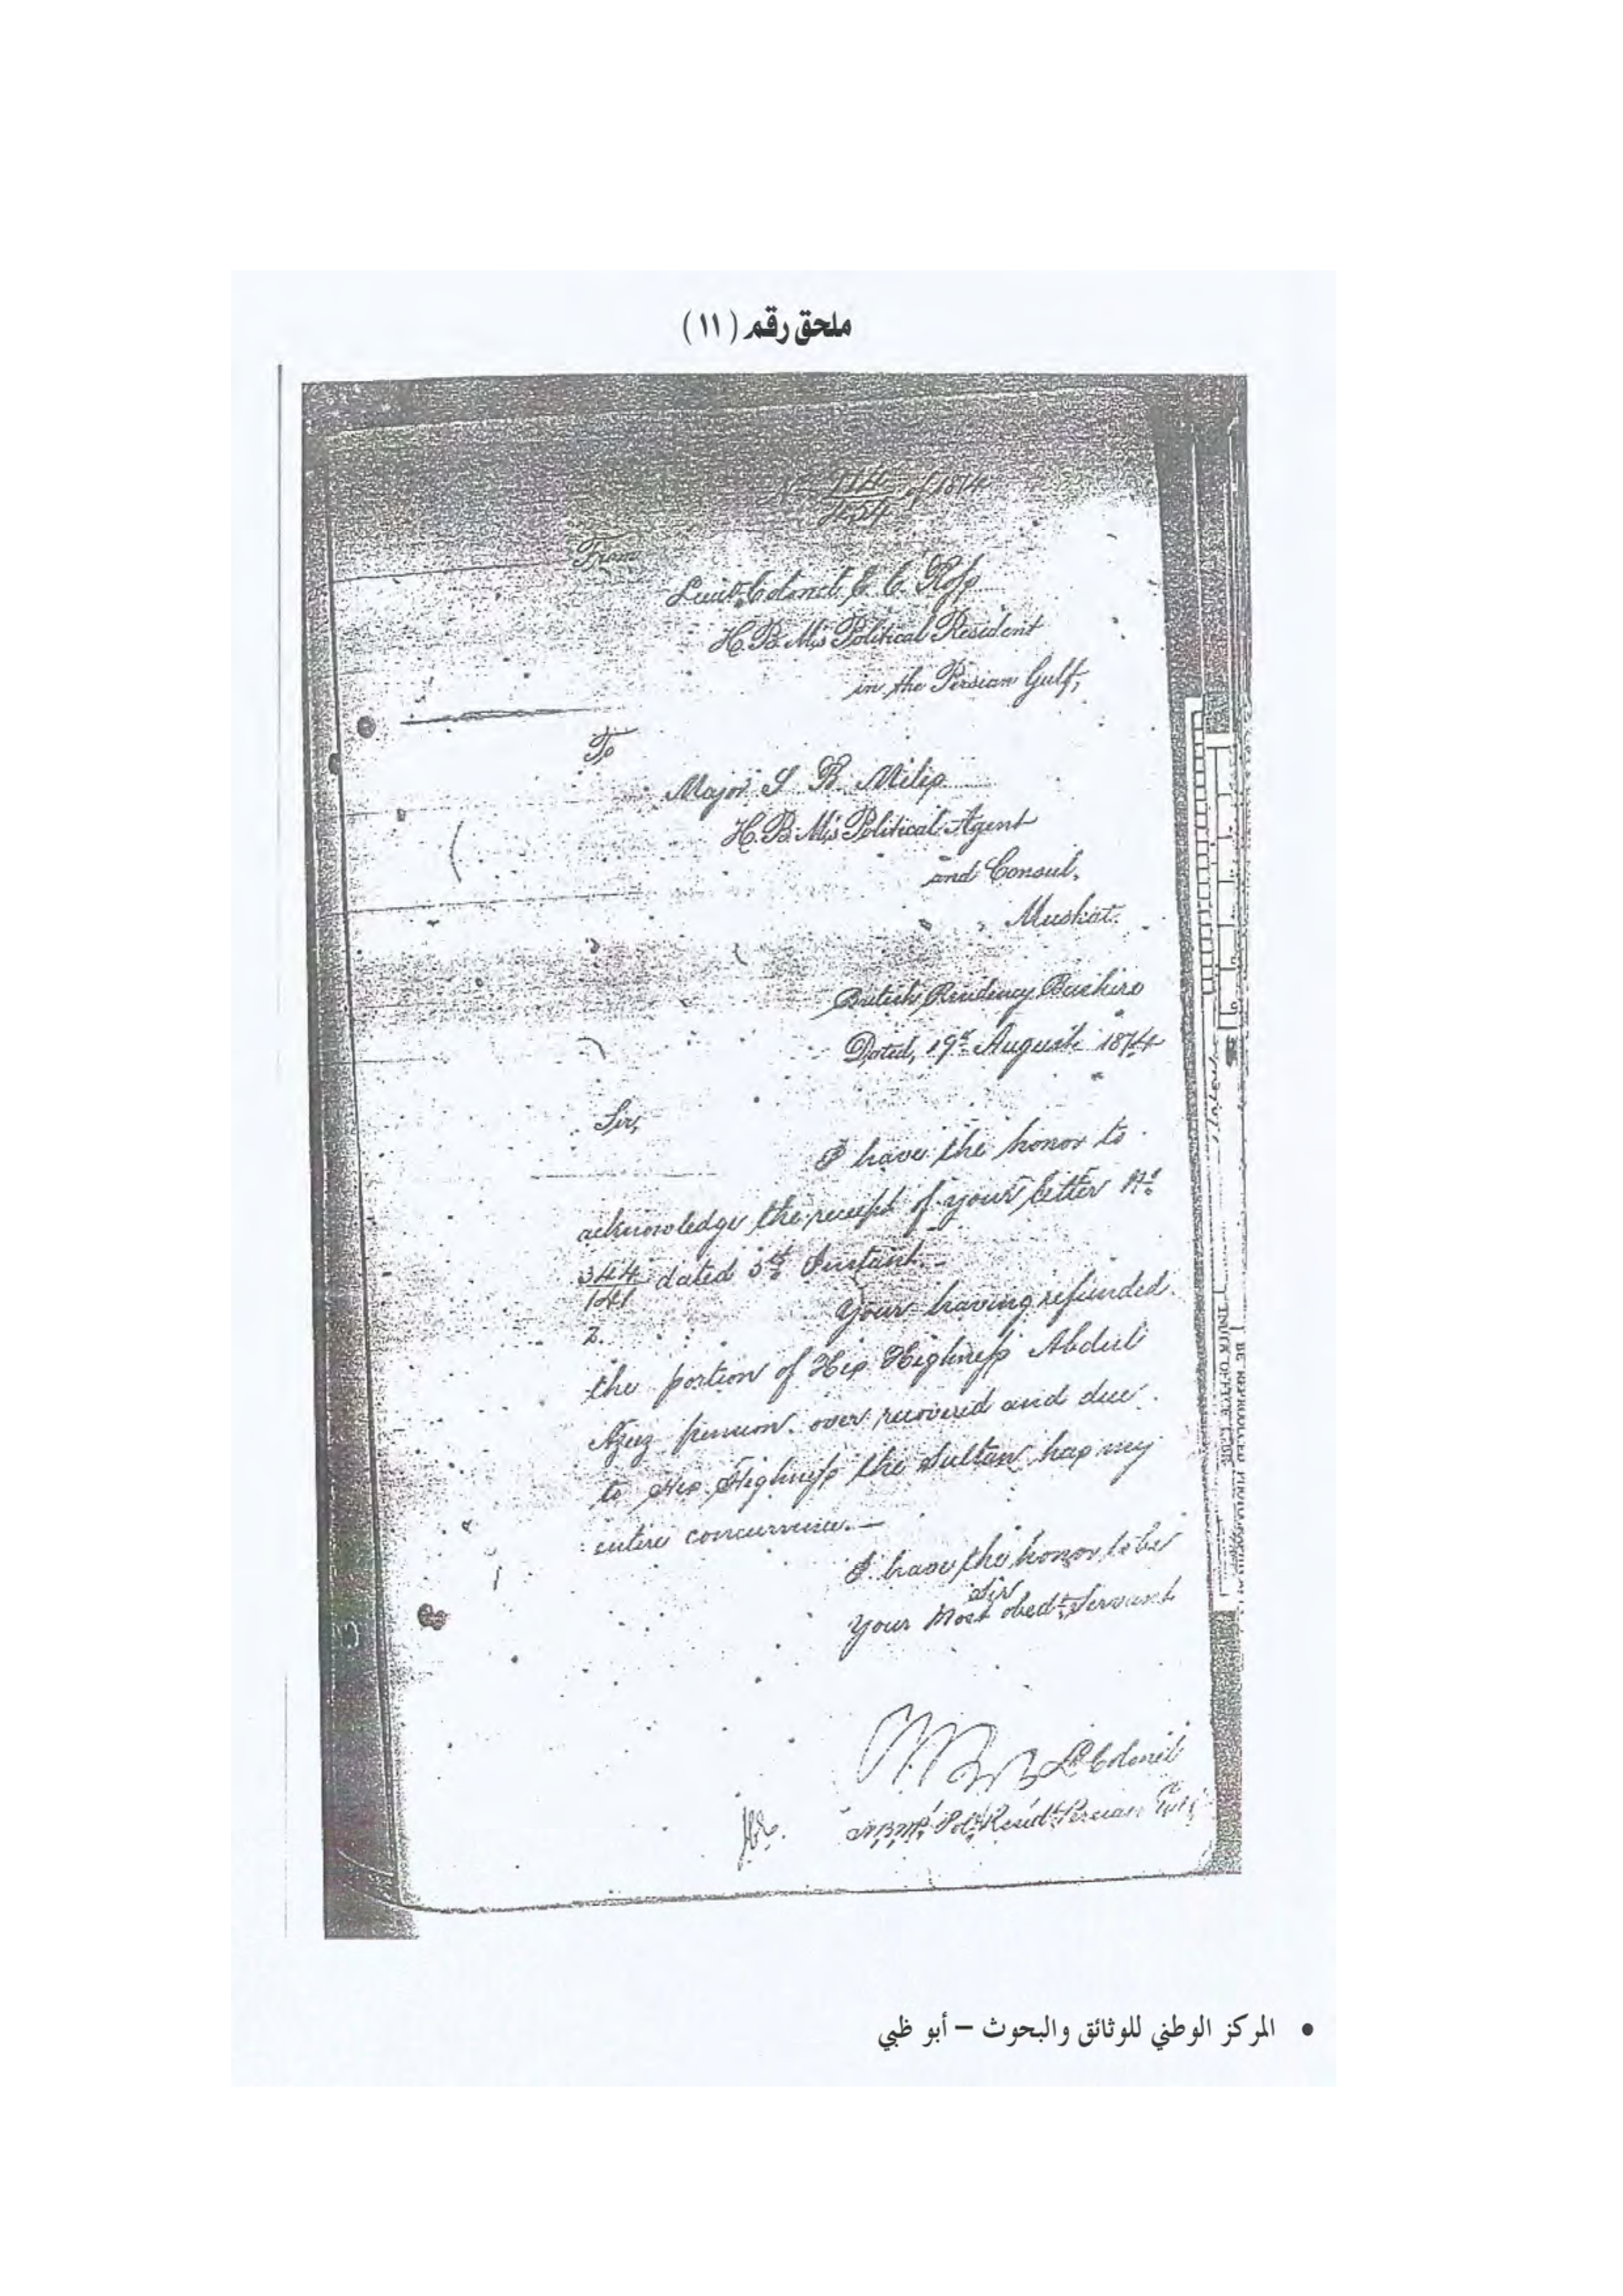 ملحق رقم (١١)
No 1114/454 of 1874
From
Lieut. Colonel E. C. Ross
H. B. M's Political Resident
in the Persian Gulf,
To
Major S B Miles
H. B. M's Political Agent
and Consul,
Muskat.
British Residency Bushire
Dated, 19th August 1874
Sir,
I have the honor to
acknowledge the receipt of your letter No
344/141 dated 5th Instant.—
2. Your having refunded
the portion of His Highness Abdul
Aziz pension over recovered and due
to His Highness the Sultan has my
entire concurrence.—
I have the honor to be
Sir
Your Most obedt. Servant
Lt Colonel
H.B.M's Pol. Residt. Persian Gulf
• المركز الوطني للوثائق والبحوث – أبو ظبي